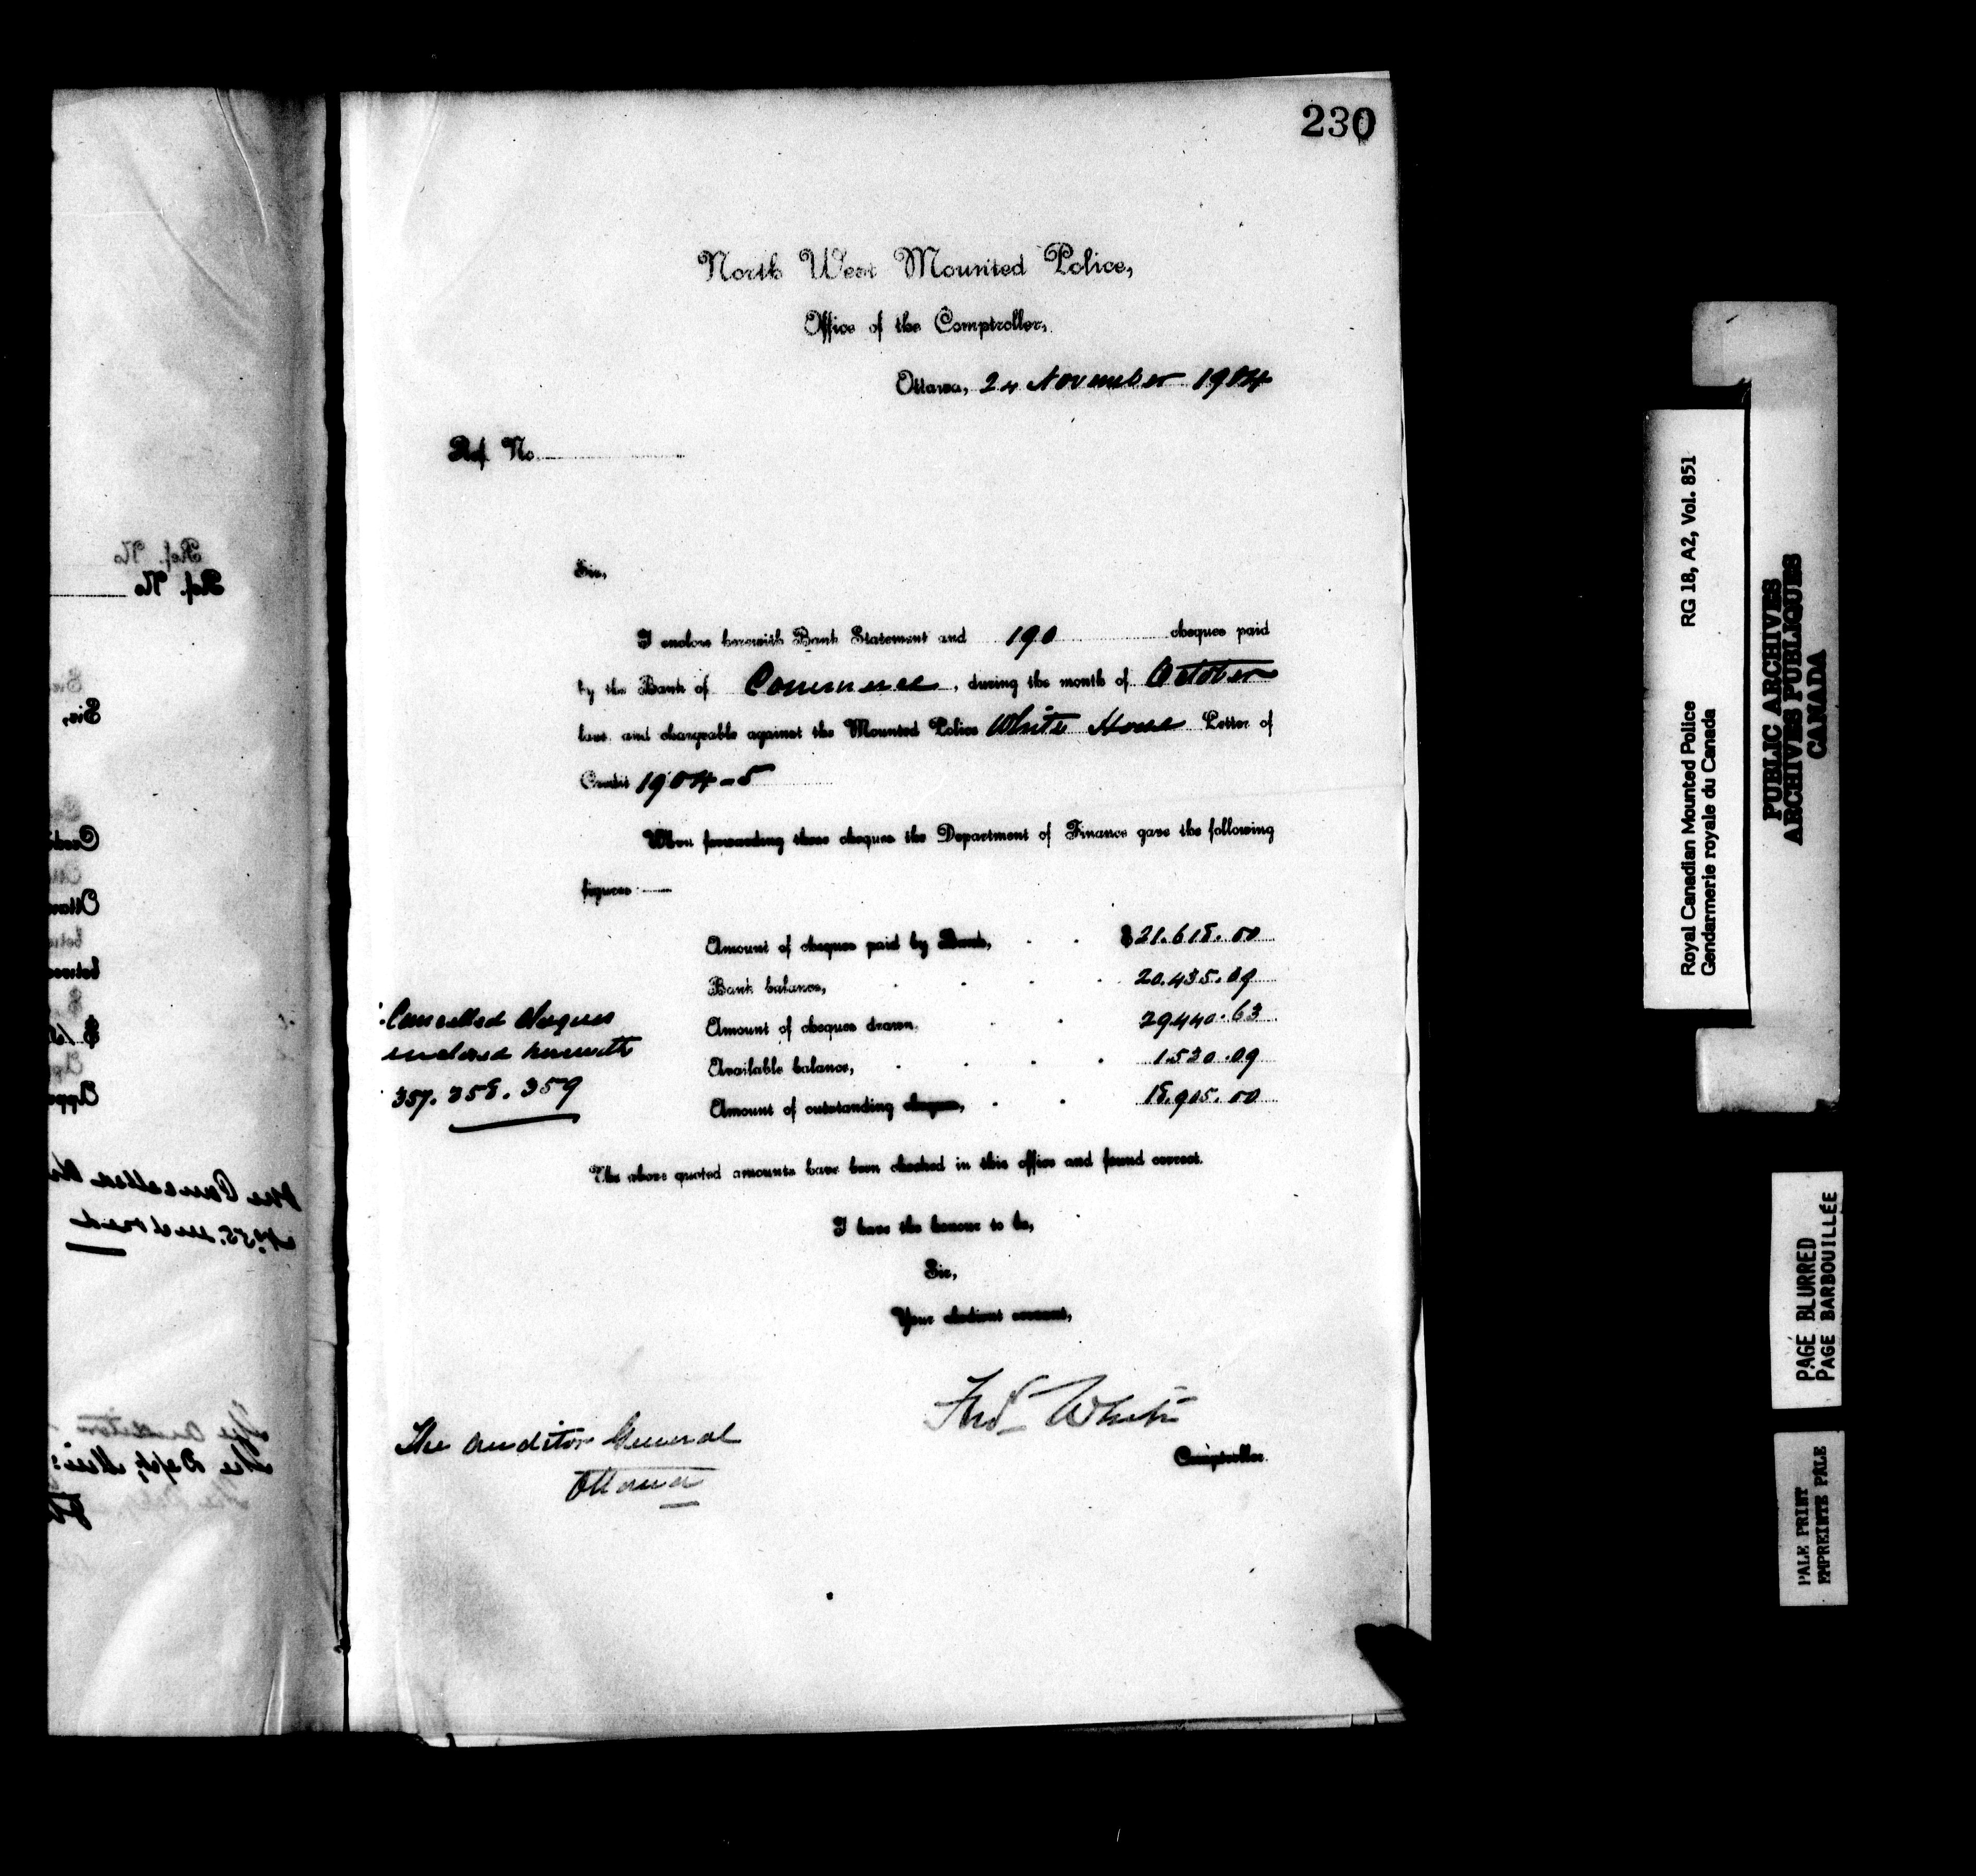 230
North West Mounted Police,
Office of the Comptroller,
Ottawa, 24 November 1904
Ref. No.
Sir,
I enclose herewith Bank Statement and 190 cheques paid
by the Bank of Commerce, during the month of October
last and chargeable against the Mounted Police White Horse Letter of
Credit 1904-5
When forwarding these cheques the Department of Finance gave the following
figures:—
Amount of cheques paid by Bank, $21.618.00
Bank balance, 20.435.09
Amount of cheques drawn, 29440.63
Available balance, 1.530.09
Amount of outstanding cheques, 18.905.00
Cancelled cheques
enclosed herewith
357. 358. 359
The above quoted amounts have been checked in this office and found correct.
I have the honour to be,
Sir,
Your obedient servant,
Fred White
Comptroller.
The Auditor General
Ottawa
Ref. No
Ref. No
Sir,
Royal Canadian Mounted Police
Gendarmerie royale du Canada
RG 18, A2, Vol. 851
PUBLIC ARCHIVES
ARCHIVES PUBLIQUES
CANADA
PAGE BLURRED
PAGE BARBOUILLÉE
PALE PRINT
EMPREINTE PÂLE